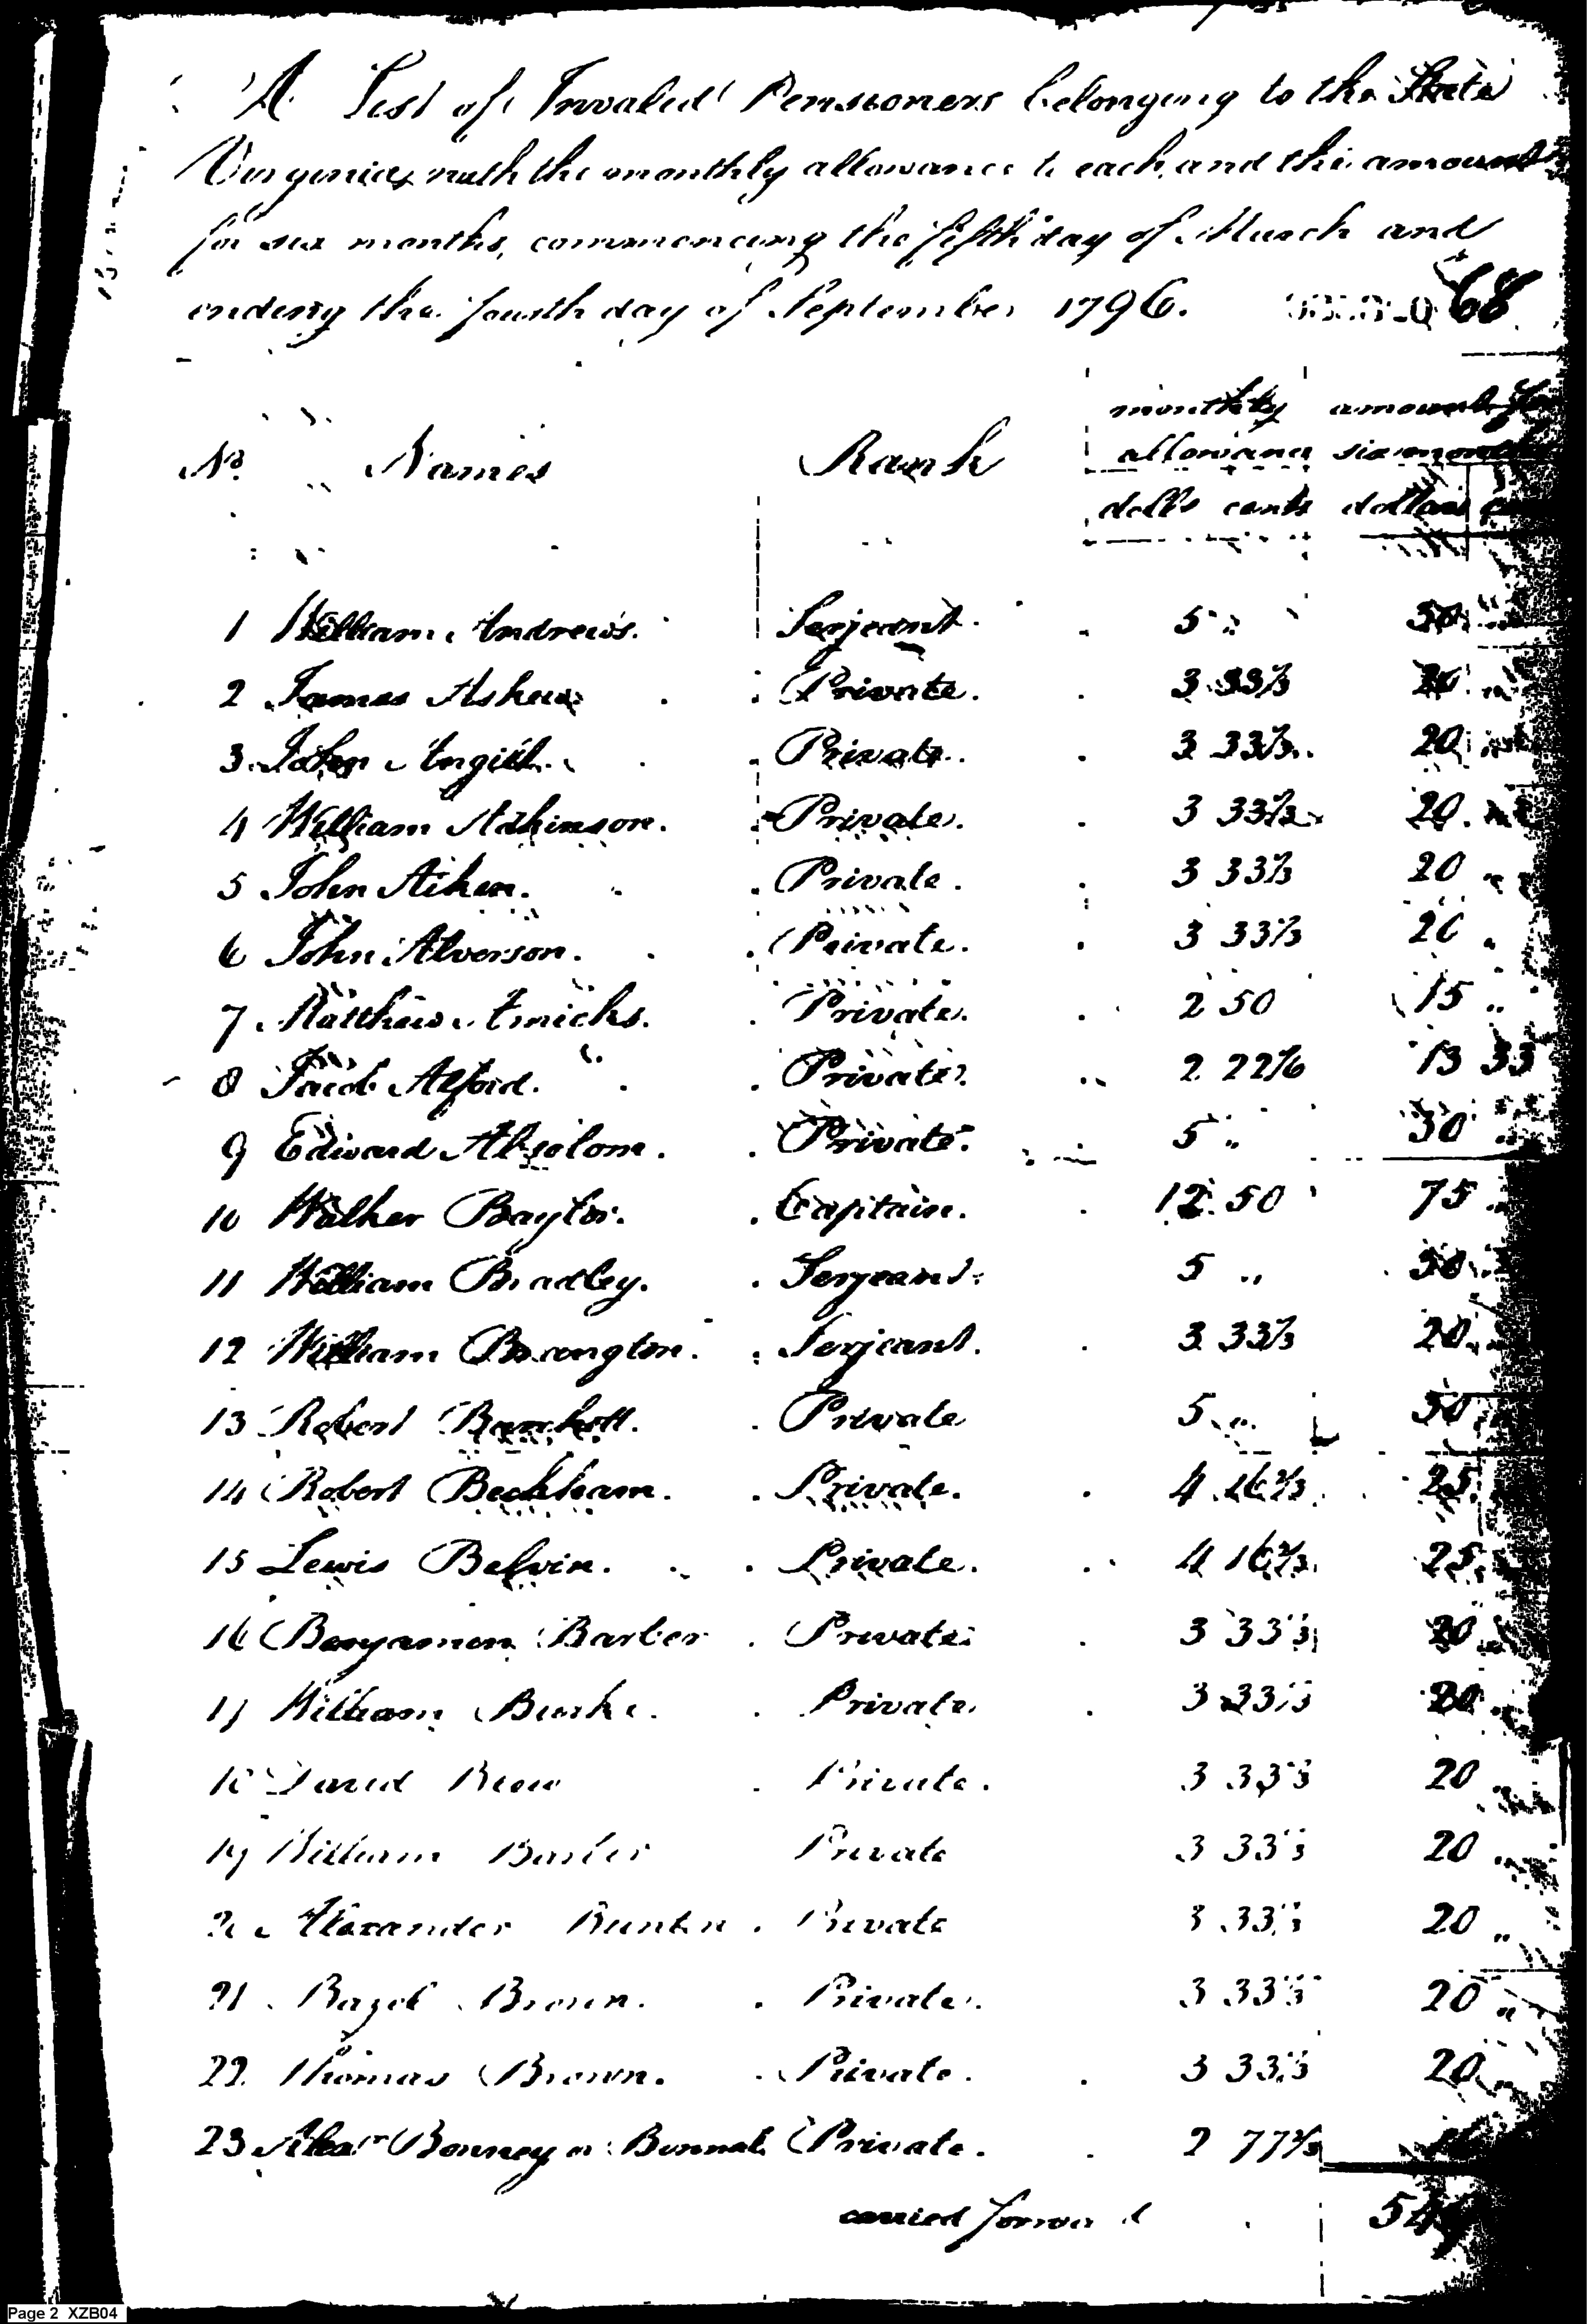 A List of Invalid Pensioners belonging to the State
Virginia, with the monthly allowance to each, and the amount
for six months, commencing the fifth day of March and
ending the fourth day of September 1796. 68
monthly amount for
No. Names Rank allowance six months
dolls cents dollars
1 William Andrews. Serjeant. 5 " 30
2 James Askew Private. 3 33⅓ 20
3 John Angill. Private. 3 33⅓ 20
4 William Atkinson. Private. 3 33⅓ 20
5 John Aiken. Private. 3 33⅓ 20 "
6 John Alverson. Private. 3 33⅓ 20 "
7 Matthew Amicks. Private. 2 50 15 "
8 Jacob Alford. Private. 2 22 13 33
9 Edward Absolom. Private. 5 " 30
10 Walker Baylor. Captain. 12 50 75
11 William Bradley. Serjeant. 5 " 30
12 William Serjeant. 3 33⅓ 20
13 Robert Private 5 " 30
14 Robert Beckham. Private. 4 16⅔ 25
15 Lewis Belvin. Private. 4 16⅔ 25
16 Benjamin Barber Private 3 33⅓ 20
17 William Burke. Private 3 33⅓ 20
18 David Private. 3 33⅓ 20
19 William Private 3 33⅓ 20
20 Alexander Private 3 33⅓ 20 "
21 Bazel Brown. Private. 3 33⅓ 20 "
22 Thomas Brown. Private. 3 33⅓ 20
23 Alexr Bonney or Bonnel Private. 2 77⅔
carried forward
Page 2 XZB04